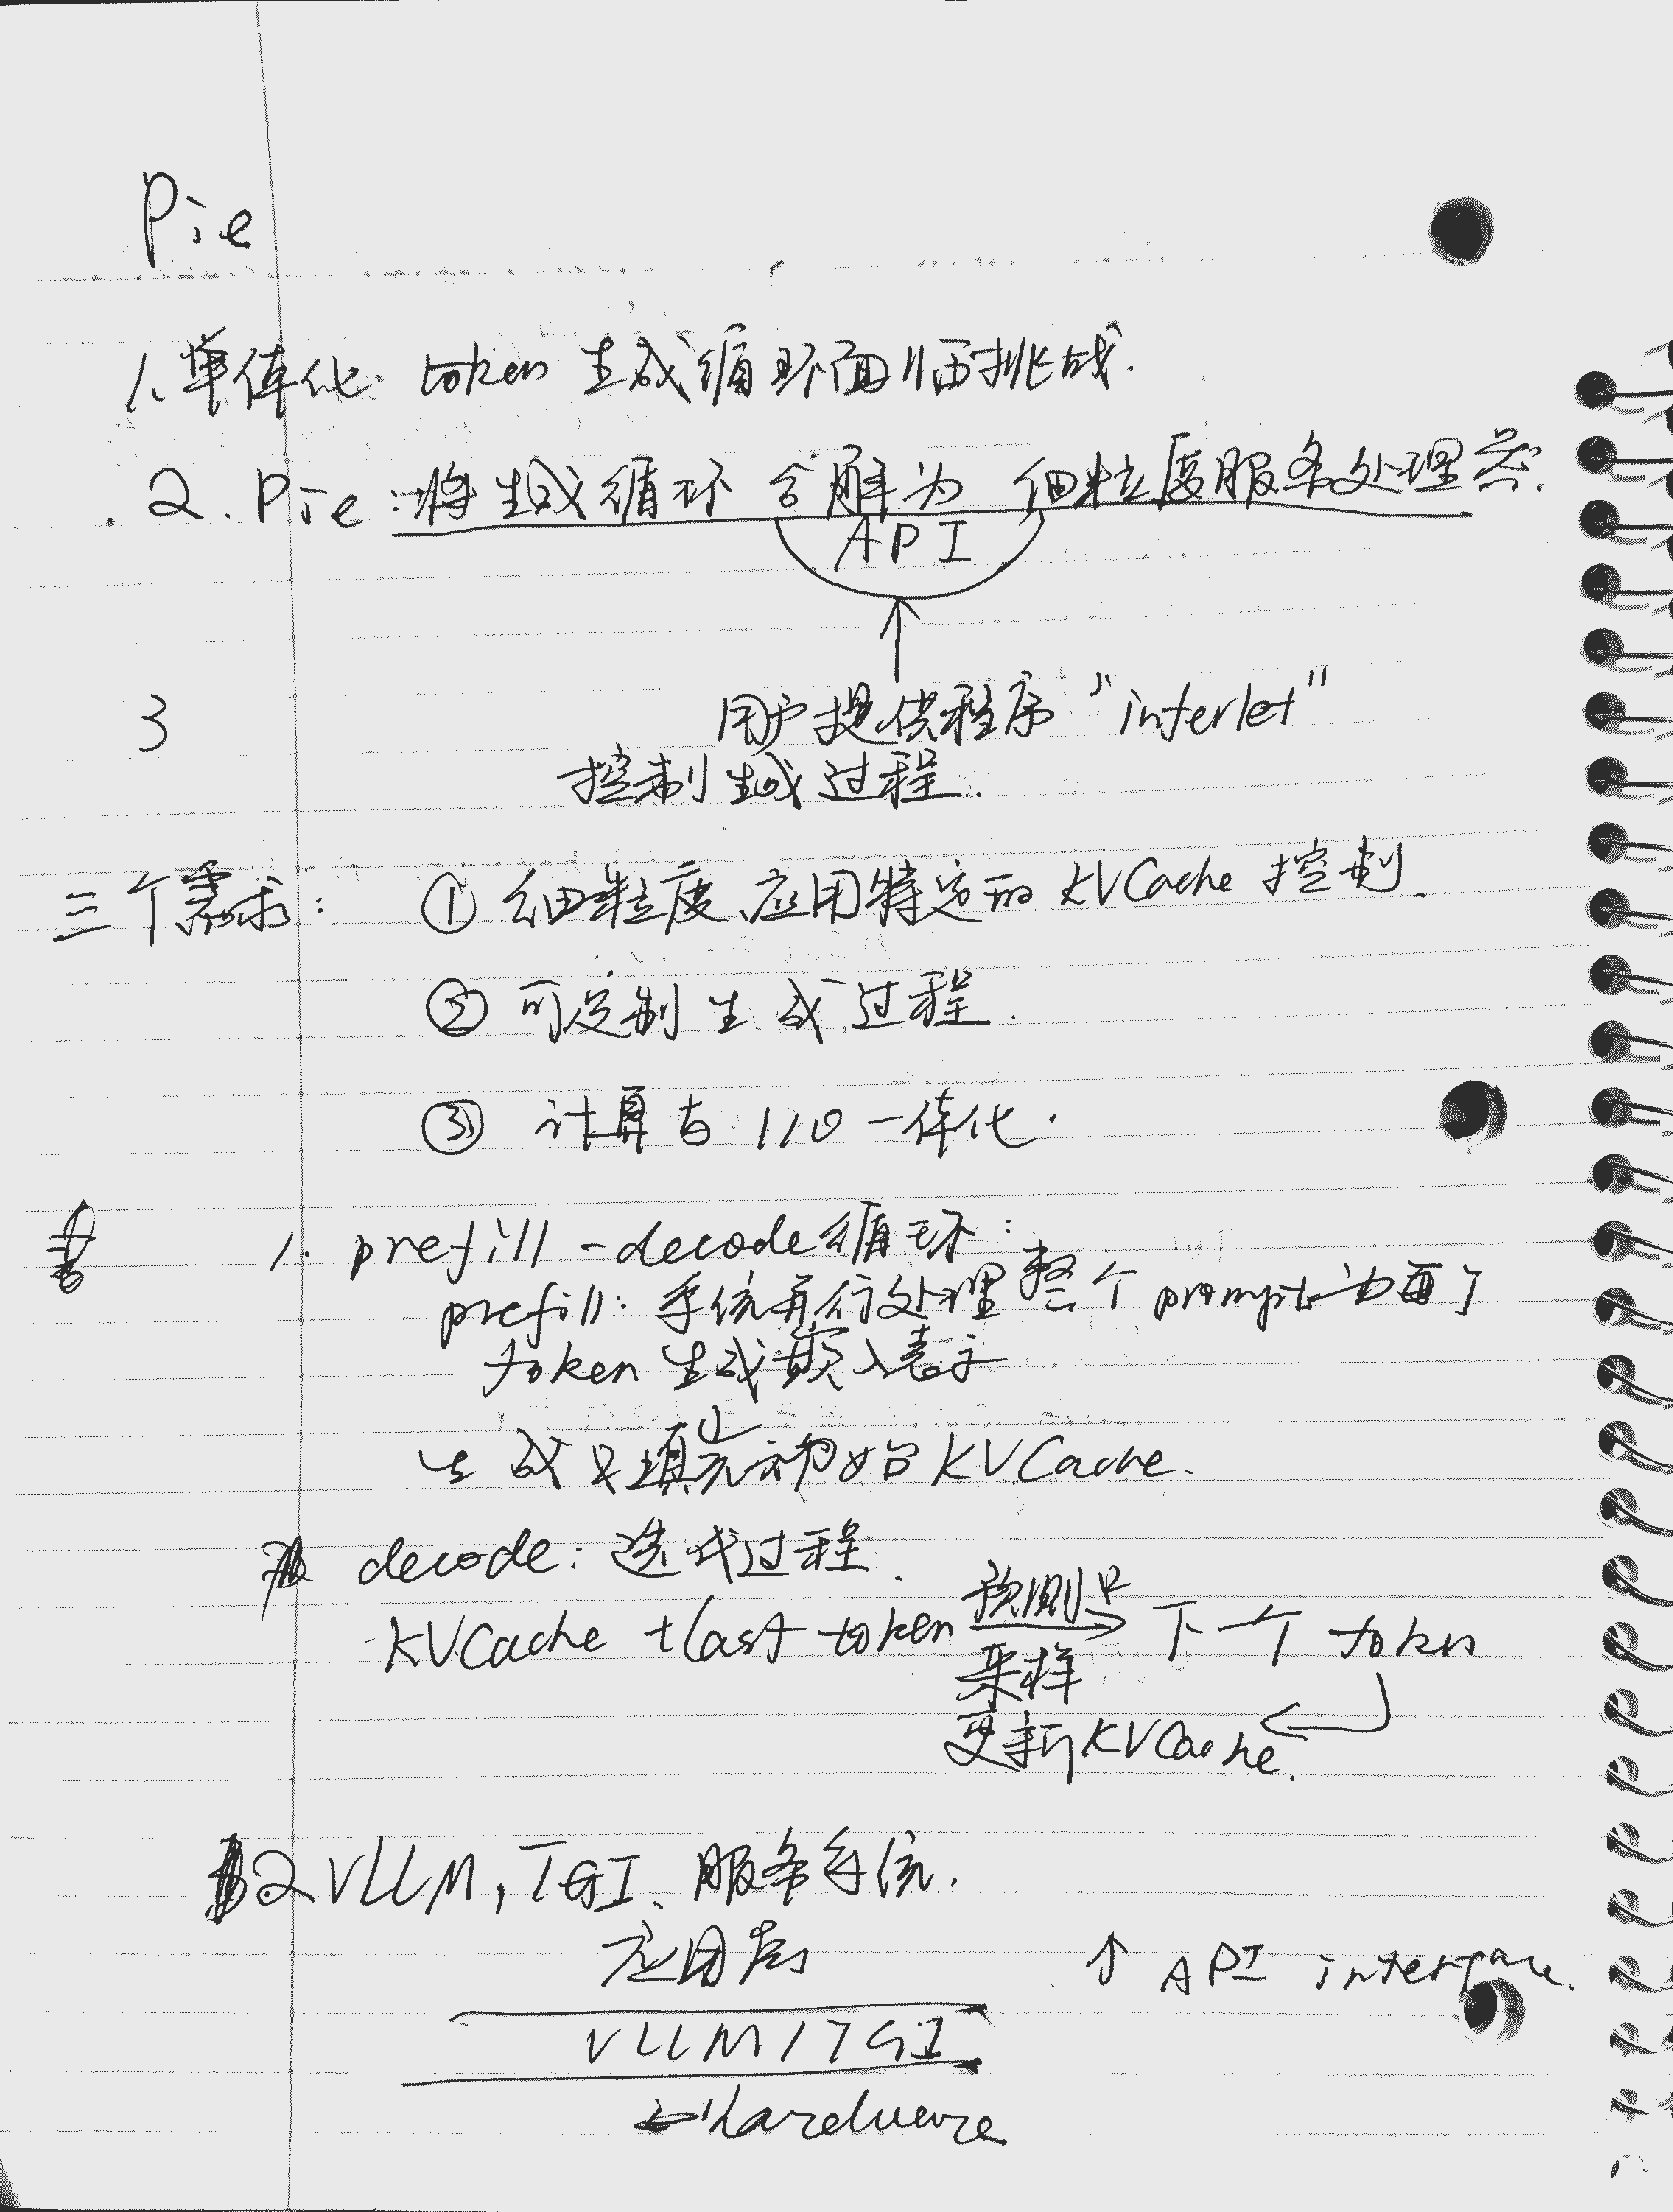 Pie
1. 单体化 token 生成循环面临挑战.
2. Pie: 将生成循环分解为 细粒度服务处理器.
API
3 用户提供程序 "inferlet"
控制生成过程.
三个需求: ① 细粒度、应用特定的 KVCache 控制.
② 可定制生成过程.
③ 计算与 I/O 一体化.
1. prefill-decode循环:
prefill: 系统并行处理整个 prompt 为每个
token 生成嵌入表示
↓
生成及填充初始 KVCache.
decode: 迭代过程.
KVCache + last token 预测 → 下一个 token
采样
更新KVCache.
2 VLLM, TGI、服务系统.
应用层 ↑ API interface.
VLLM / TGI
hardware